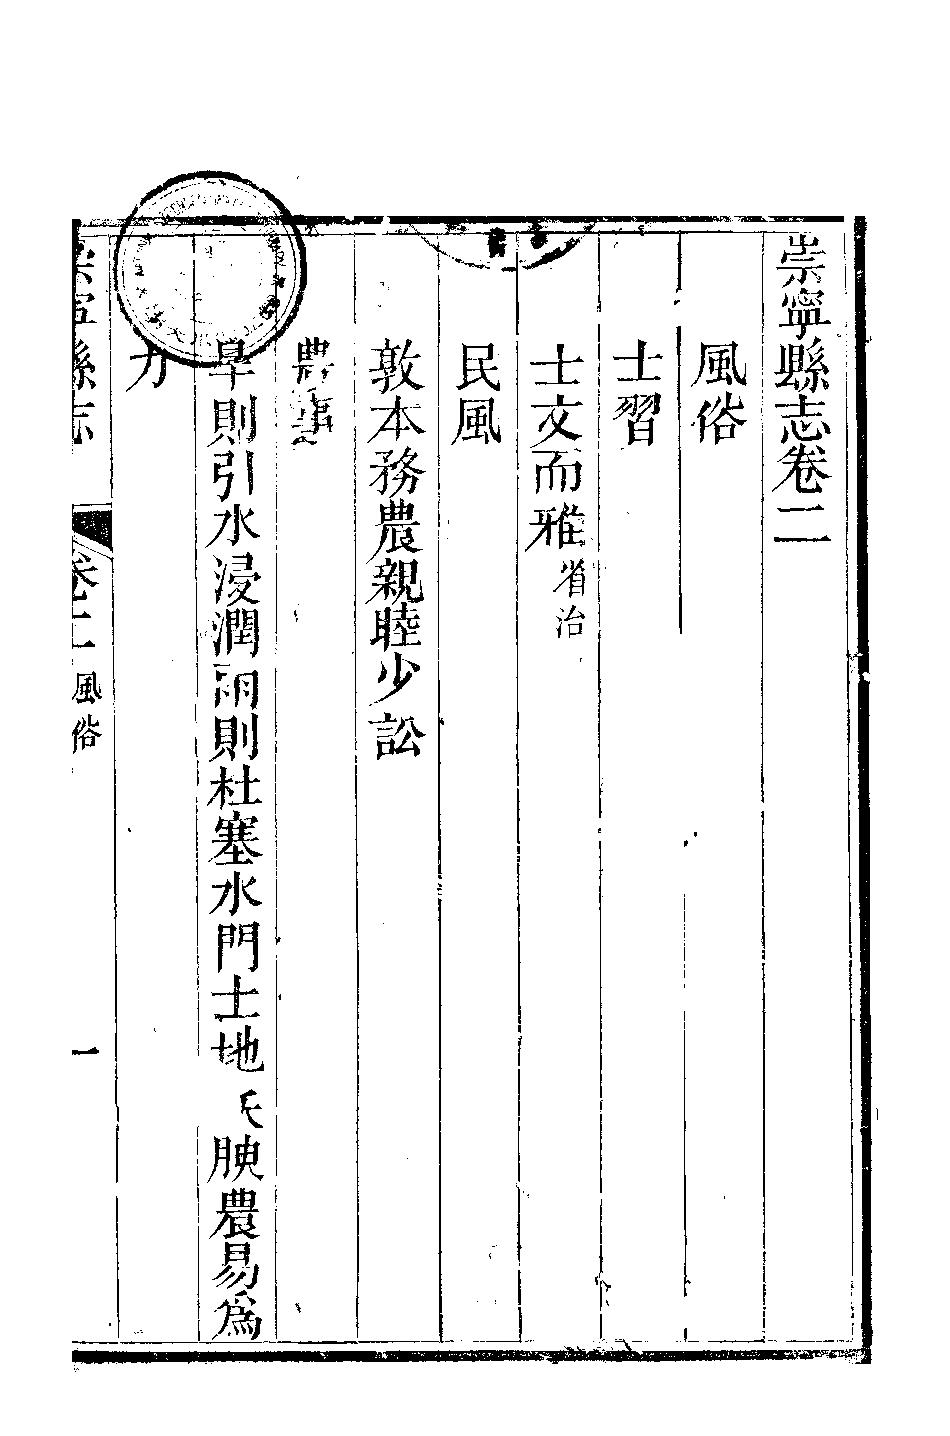 崇寧縣志卷二
風俗
士習
士文而雅省治
民風
敦本務農親睦少訟
農事
旱則引水浸潤雨則杜塞水門土地沃腴農易為
力
崇寧縣志 卷二 風俗 一